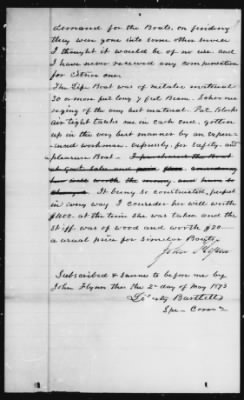 demand for the Boats, on finding
they were gone into some other service
I thought it would be of no use and
I have never received any compensation
for either one
The Life Boat was of metalic material
30 or more feet long 7 feet Beam.
of the very best material. Pat. Blocks
air tight tanks one in each end, gotten
up in the very best manner by an experi-
enced workman. expressly, for safety, and
pleasure Boat. I purchased the Boat
at govt sale and
was well worth the money and more to
It being so constructed, perfect
in every way I consider her well worth
$400. at the time she was taken and the
Skiff was of wood and worth $20–
a usual price for similar Boats,
John Flynn
Subscribed & sworn to before me by
John Flynn this the 2d day of May 1873
Bartlett
Spe– Com–